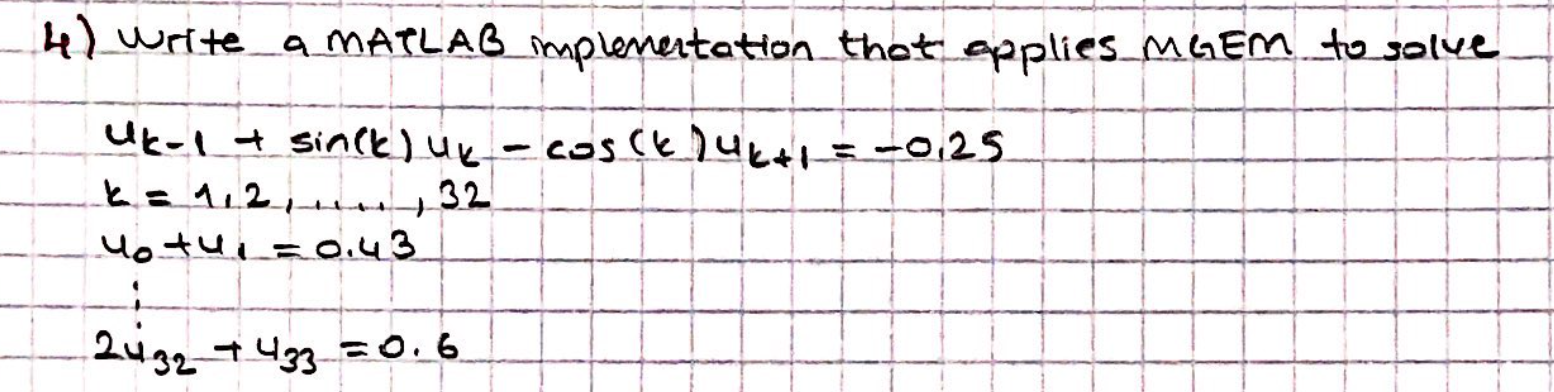 4) Write a MATLAB implementation that applies MGEM to solve
uk-1 + sin(k) uk - cos(k) uk+1 = -0,25
k = 1,2,....,32
u0 + u1 = 0.43
⋮
2u32 + u33 = 0.6